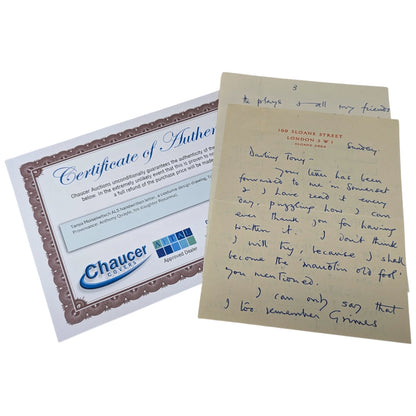 Certificate of Authen
Chaucer Auctions unconditionally guarantees the authenticity of the
below. In the extremely unlikely event that this is proven to no
a full refund of the purchase price will be made
Tanya Moiseiwitsch ALS handwritten letter, a costume design drawing,
Provenance: Anthony Quayle, his daughter Rosanna.
Chaucer
COVERS
AFTAL
Approved Dealer
3
the plays & all my friends
199 SLOANE STREET
LONDON S W 1
SLOANE
Sunday
Darling Tony –
your letter has been
forwarded to me in Somerset
& I have read it every
day, puzzling how I can
ever thank you for having
written it. I don't think
I will try, because I shall
become the 'maudlin old fool'
you mentioned.
I can only say that
I too remember Grimes